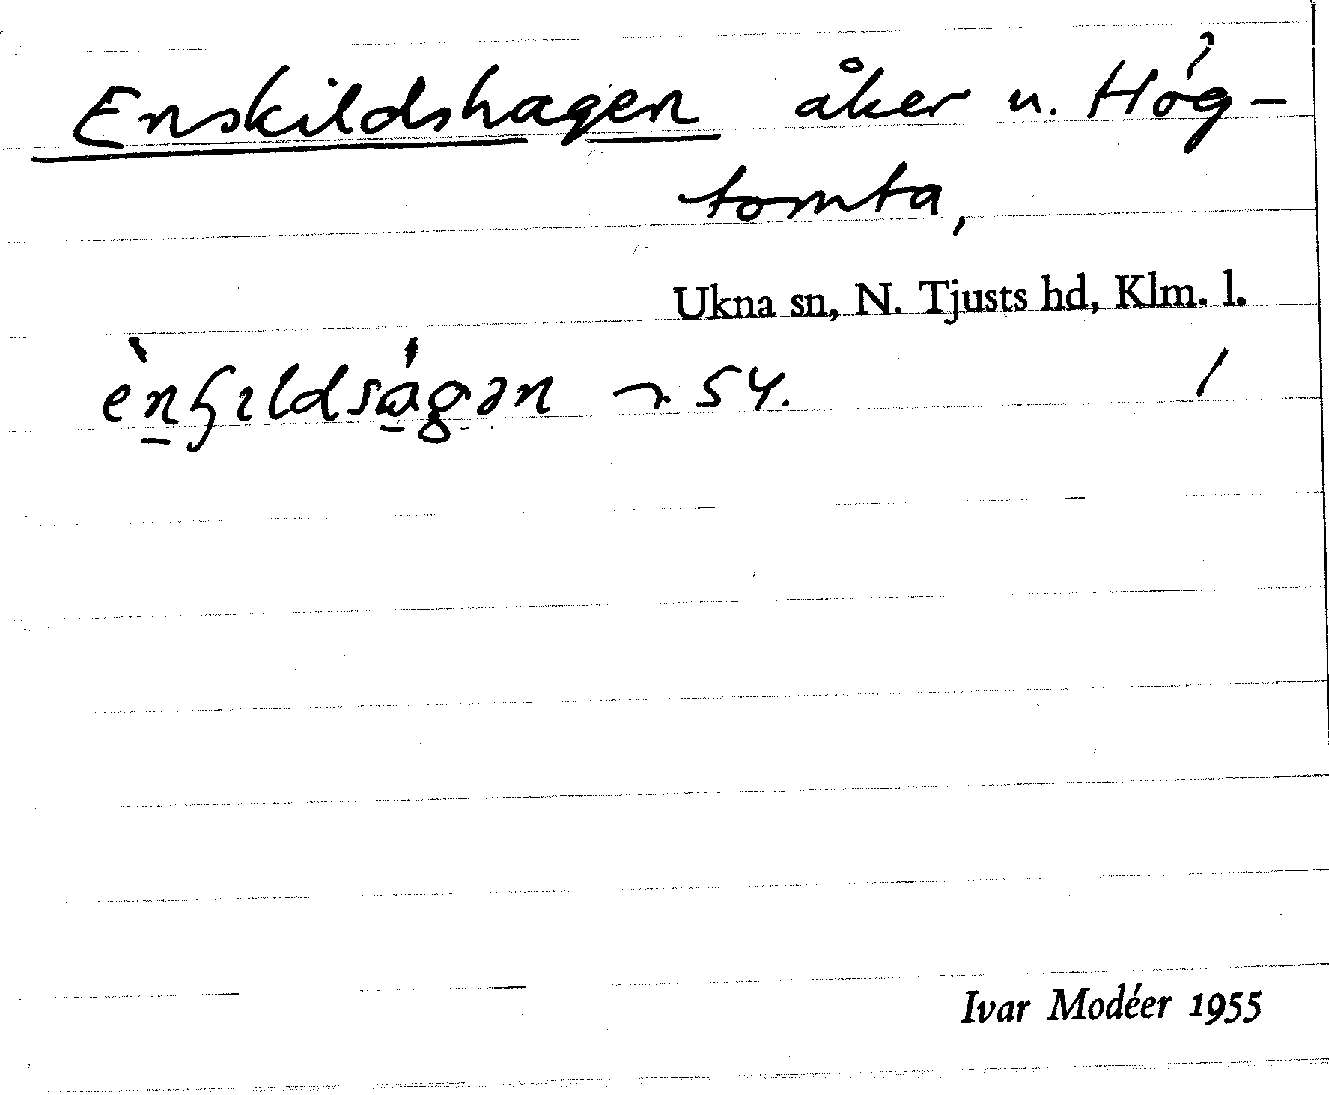 Enskildshagen åker u. Hög-
tomta,
Ukna sn, N. Tjusts hd, Klm. l.
54. /
Ivar Modéer 1955